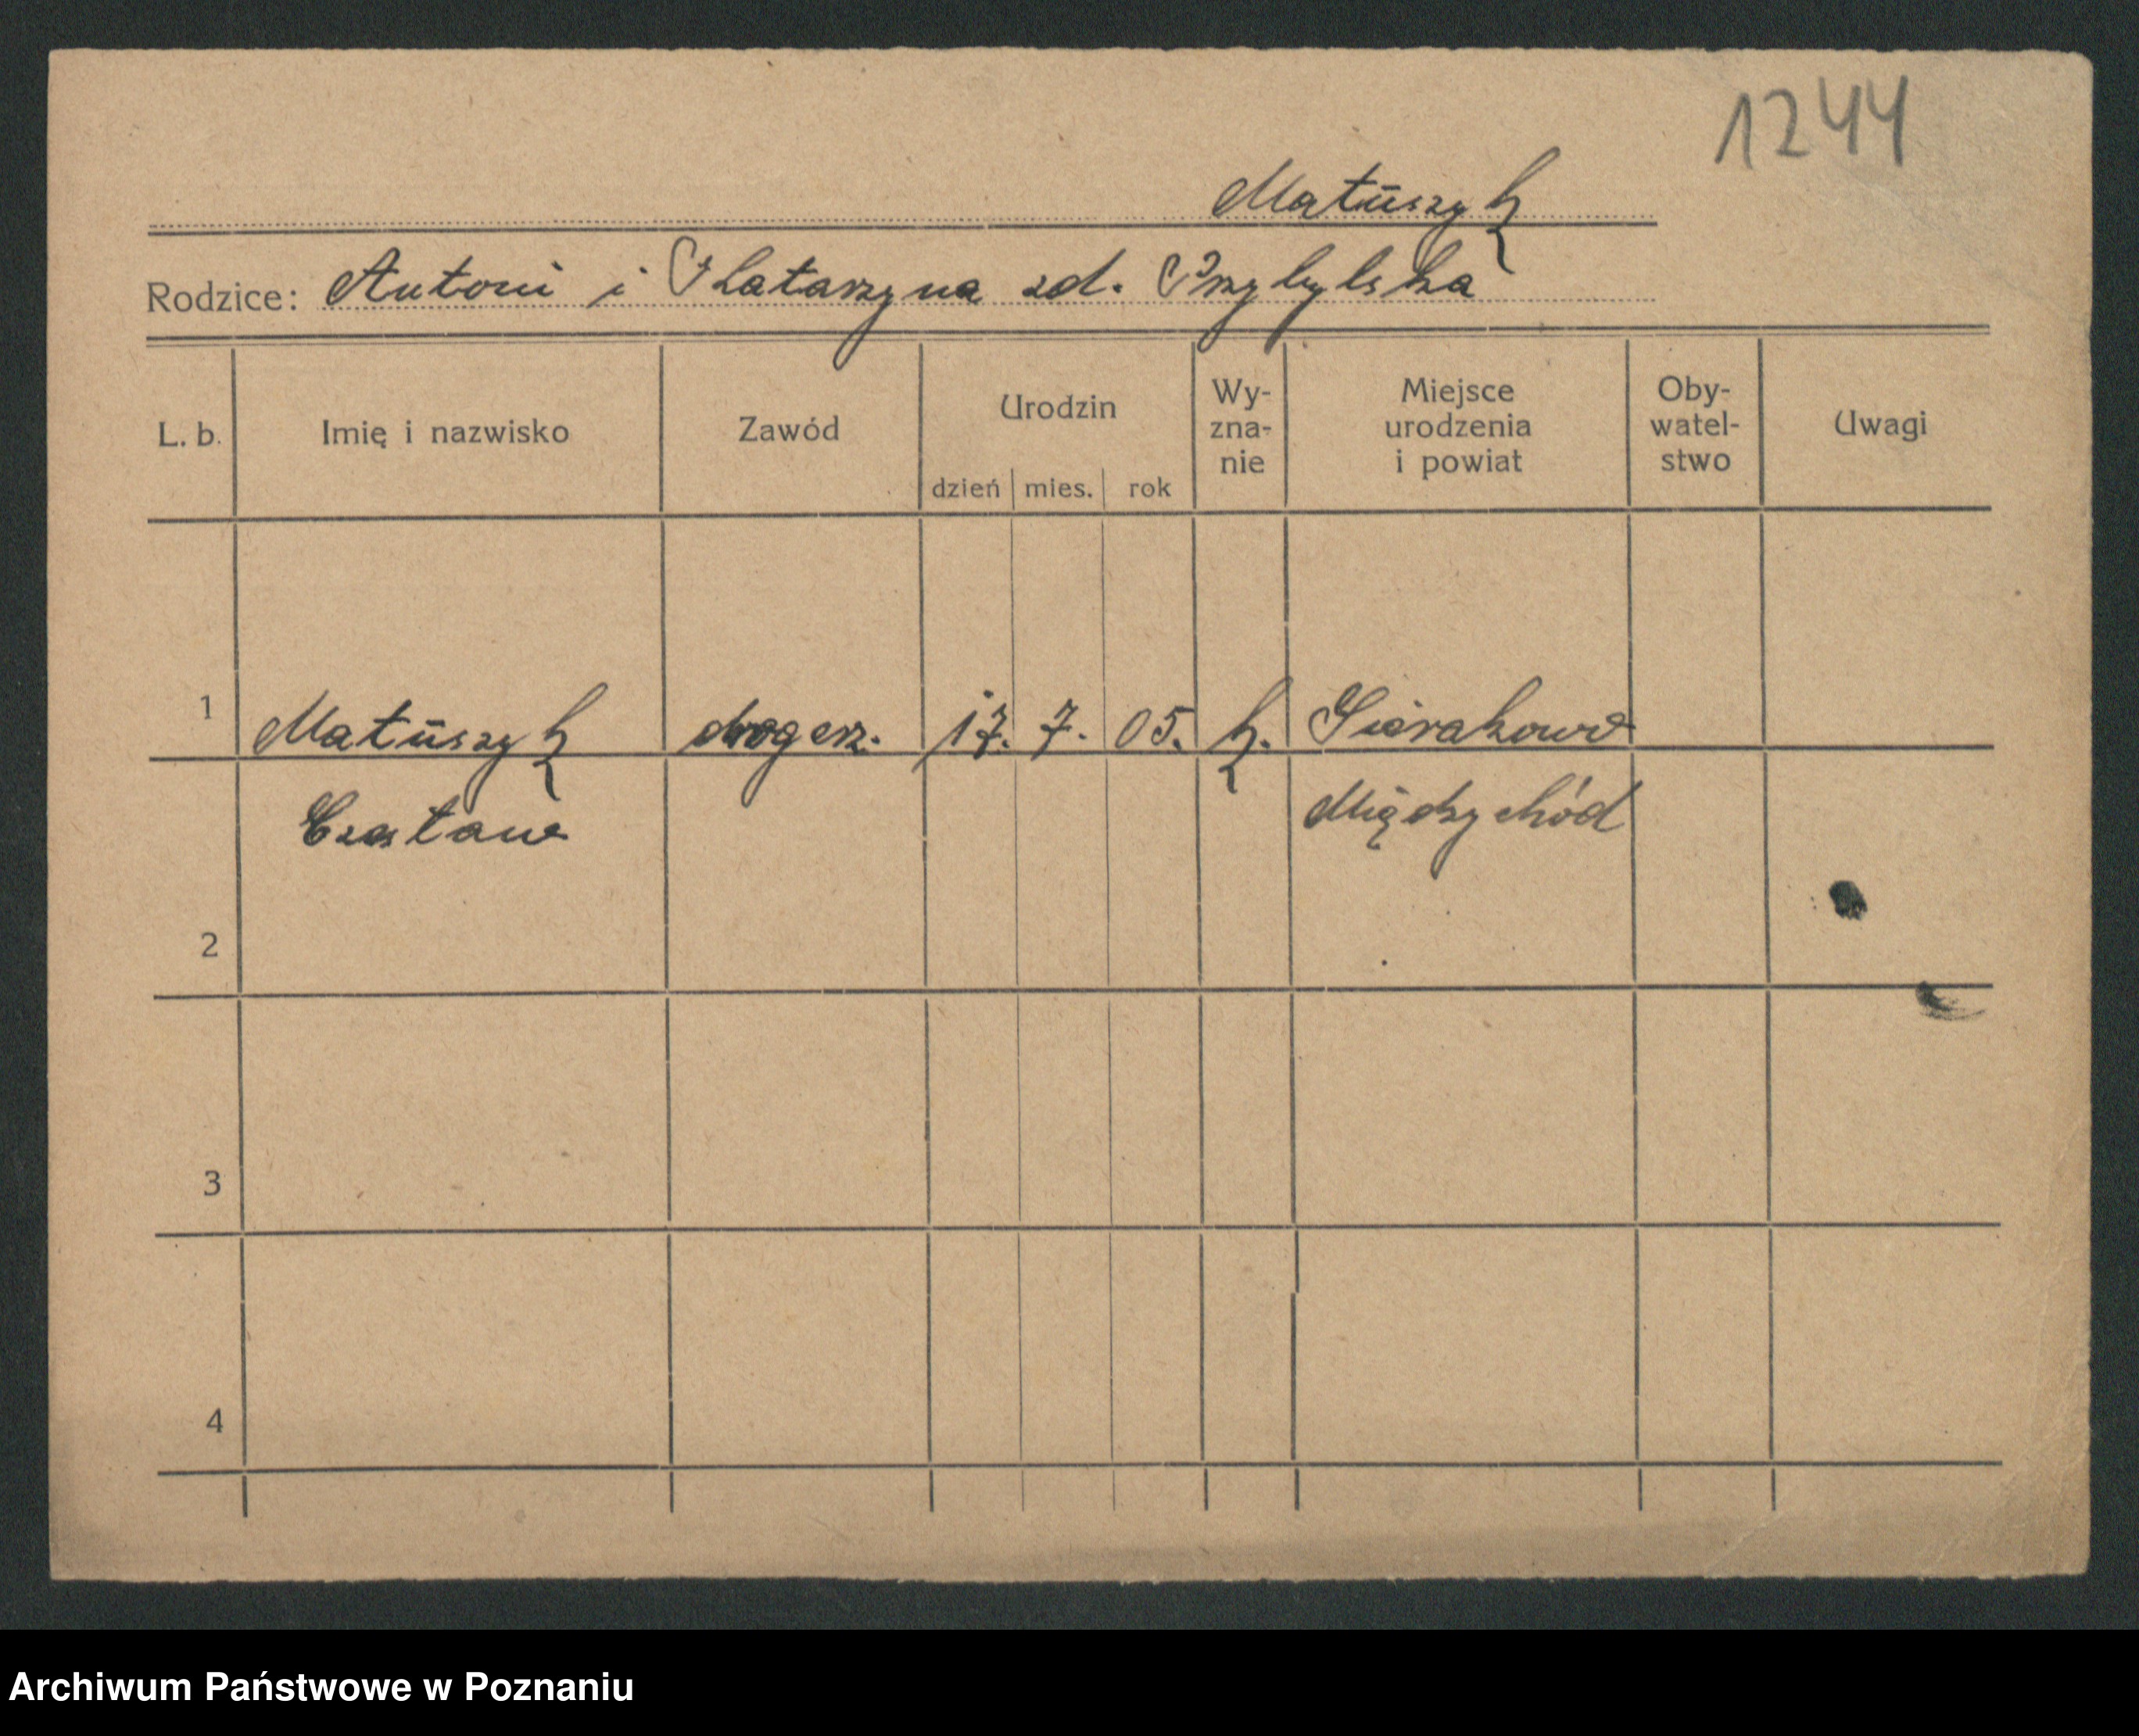 1244
Matuszyk
Rodzice: Antoni i Katarzyna zd. Przybylska
L. b. Imię i nazwisko Zawód Urodzin dzień mies. rok Wy-zna-nie Miejsce urodzenia i powiat Oby-watel-stwo Uwagi
1 Matuszyk drogerz. 17. 7. 05. k. Sierakowo
Czesław Międzychód
2
3
4
Archiwum Państwowe w Poznaniu